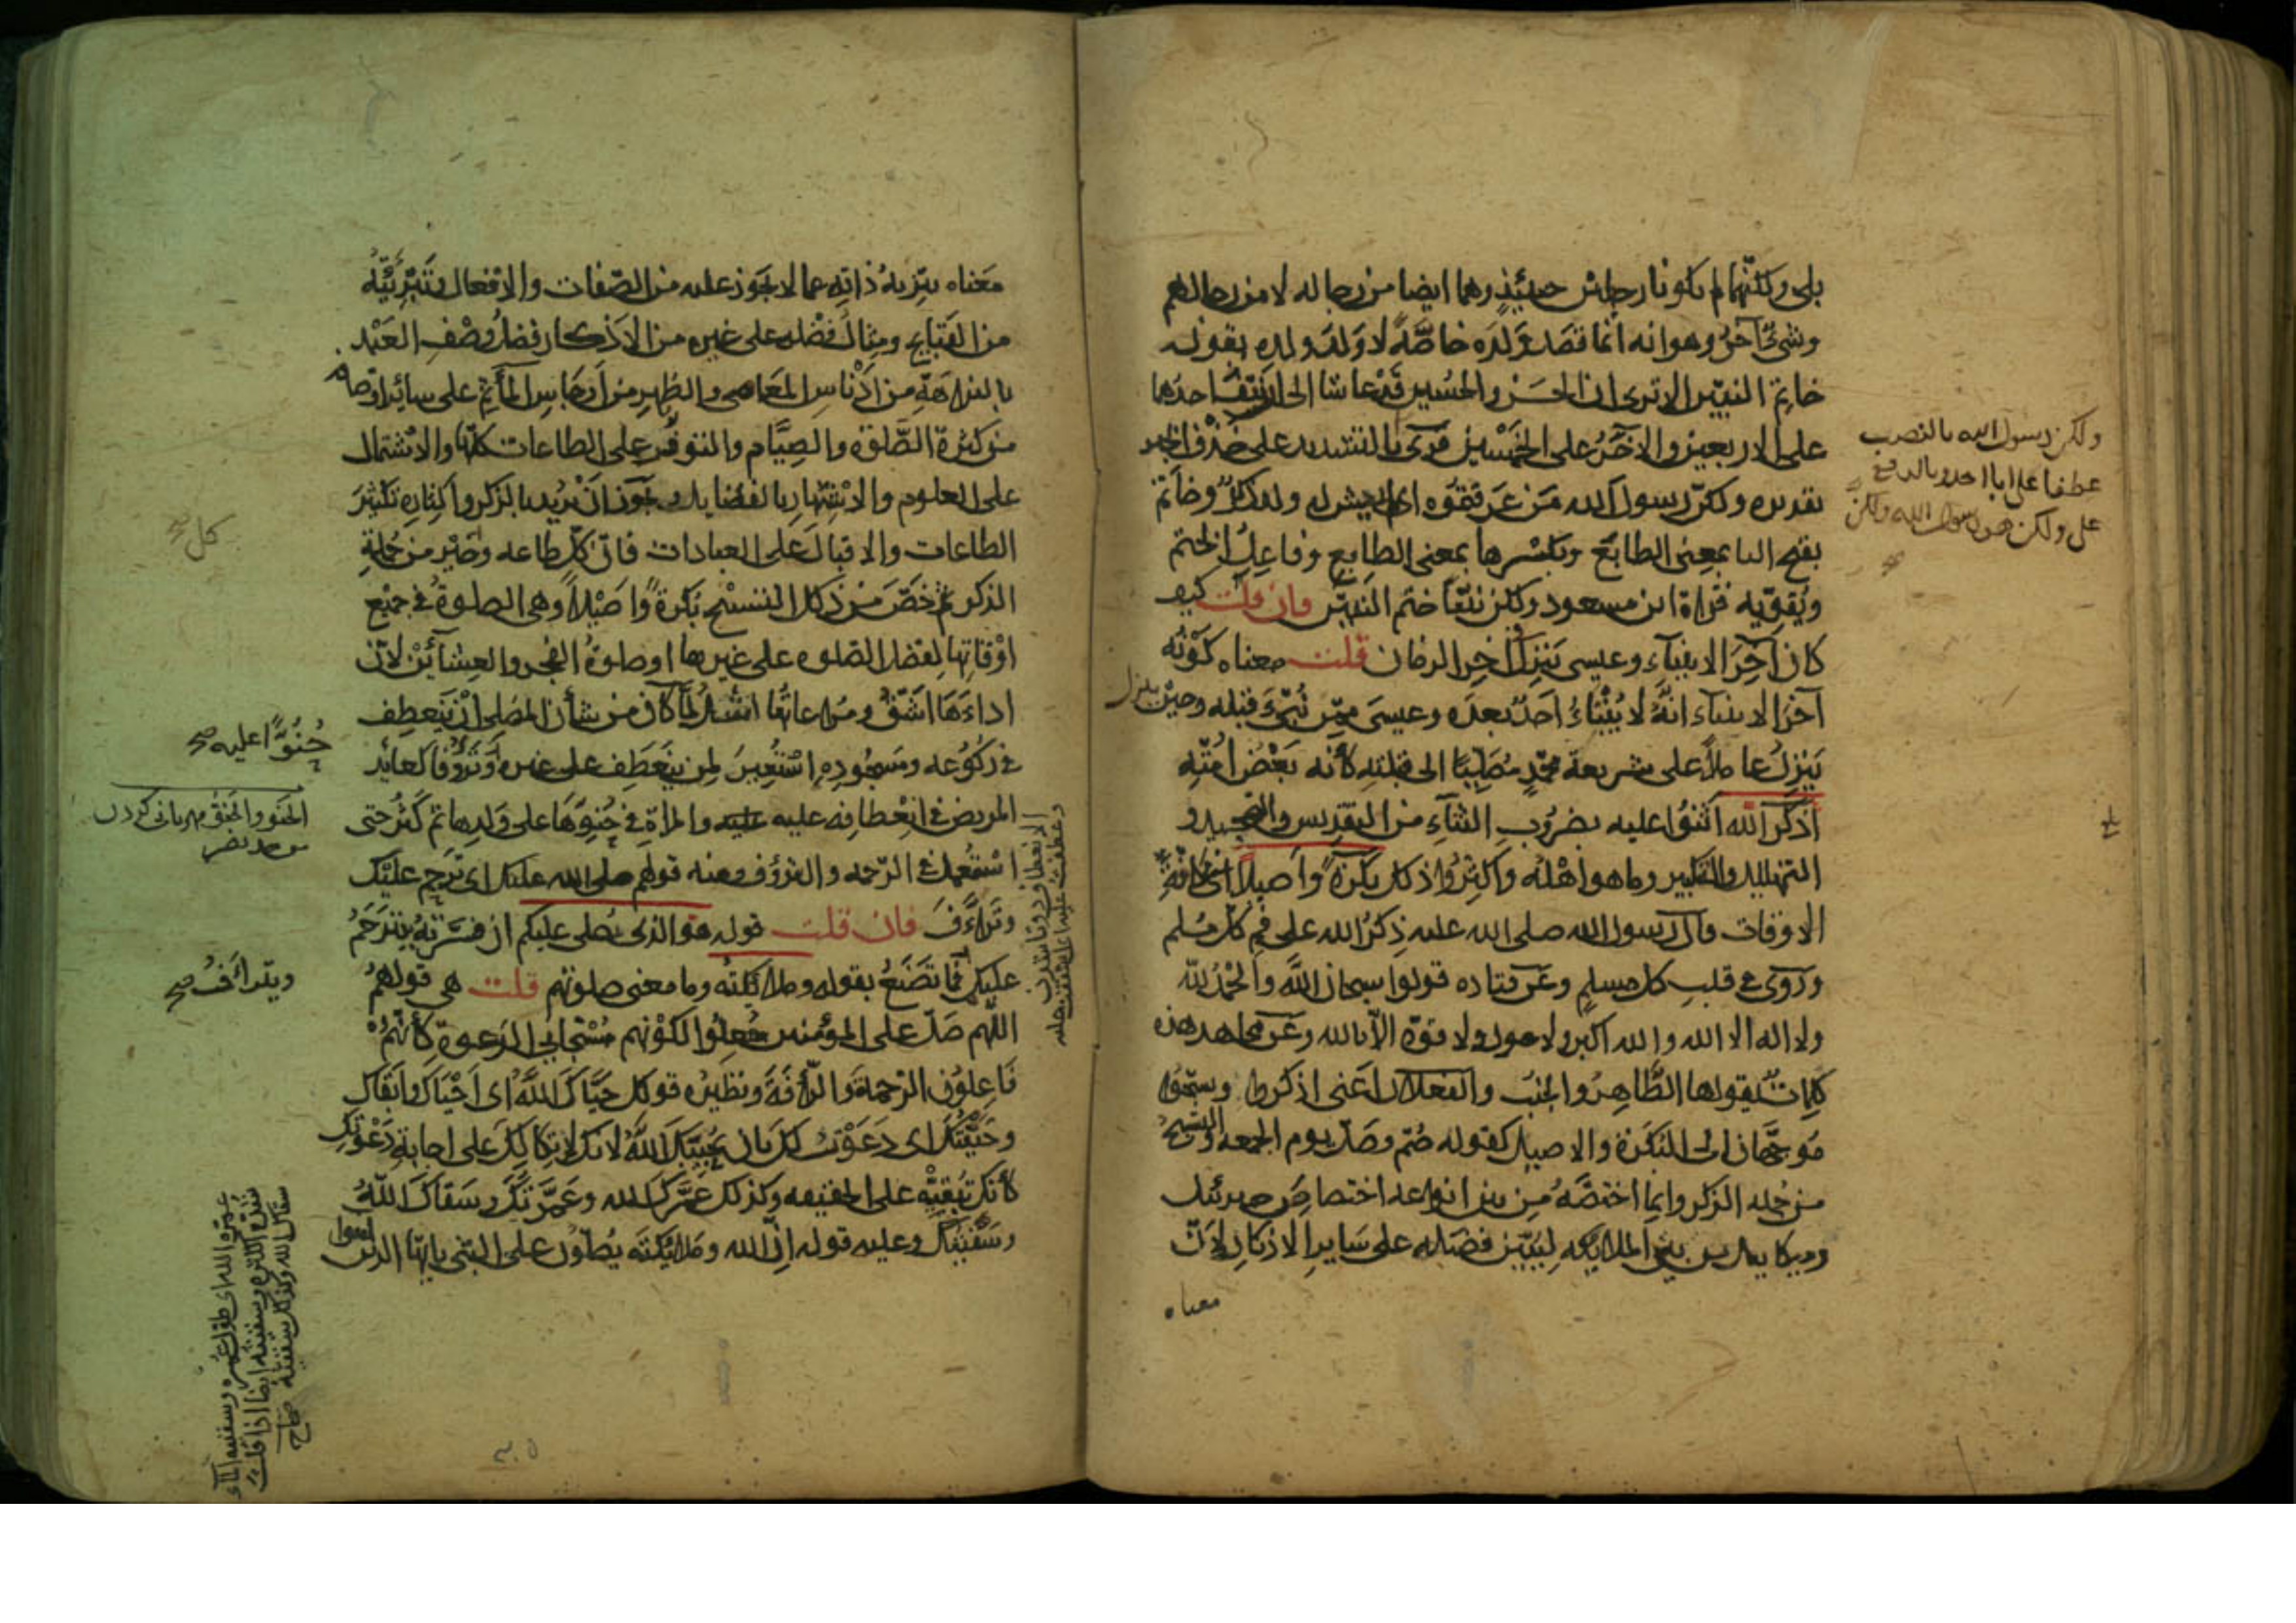 بلى ولكنهما لم يكونا رجلين حينئذ وهما ايضا من رجاله لا من رجالهم
وشئ آخر وهو انه انما قصد ولده خاصة لا ولد ولده بقوله
خاتم النبيين الا ترى ان الحسن والحسين قد عاشا الى ان نيف احدهما
على الاربعين والآخر على الخمسين قرئ بالتشديد على حذف الخبر
تقديره ولكن رسول الله من عرفتموه اى لم يعش له ولد ذكر وخاتم
بفتح التا بمعنى الطابع وبكسرها بمعنى الطابع وفاعل الختم
ويقويه قراءة ابن مسعود ولكن نبيا ختم النبيين فان قلت كيف
كان آخر الانبياء وعيسى ينزل آخر الزمان قلت معناه كونه
آخر الانبياء انه لا ينبأ احد بعده وعيسى ممن نبئ قبله وحين ينزل
ينزل عاملا على شريعة محمد مصليا الى قبلته كأنه بعض امته
اذكر الله اثنوا عليه بضروب الثناء من التقديس والتمجيد و
التهليل والتكبير وما هو اهله واكثروا ذكل بكرة واصيلا اى كافة
الاوقات قال رسول الله صلى الله عليه ذكر الله على فم كل مسلم
وروى فى قلب كل مسلم وعن قتاده قولوا سبحان الله والحمد لله
ولا اله الا الله والله اكبر ولا حول ولا قوة الا بالله وعن مجاهد هذه
كلمات يقولها الطاهر والجنب والفعلان اعنى اذكروا وسبحوه
موجهان الى البكرة والاصيل كقوله صم وصل يوم الجمعه والتسبيح
من جمله الذكر وانما اختصه من بين انواعه اختصاص جبرئيل
وميكايل من بين الملايكه ليبين فضله على ساير الاذكار لان
معناه
ولكن رسول الله بالنصب
عطفا على ابا احد وبالرفع
على ولكن هو رسول الله ولكن
معناه تنزيه ذاته عما لا يجوز عليه من الصفات والافعال وتبرئته
من القبايح ومثال فضله على غيره من الاذكار فضل وصف العبد
بالنزاهة من ادناس المعاصى والطهر من ارجاس المآثم على سائر اوصافه
من كثرة الصلوة والصيام والتوفر على الطاعات كلها والاشتمال
على العلوم والاشتهار بالفضايل ويجوز ان يريد بالذكر واكثاره تكثير
الطاعات والاقبال على العبادات فان كل طاعه وخير من جملة
الذكر ثم خص من ذكل التسبيح بكرة واصيلا وهى الصلوة فى جميع
اوقاتها لفضل الصلوه على غيرها او صلوة الفجر والعشائين لان
اداءها اشق ومراعاتها اشد لما كان من شأن المصلى ان ينعطف
فى ركوعه وسجوده استعير لمن ينعطف على غيره وترؤفا كعائد
المريض فى انعطافه عليه والمراة فى حنوها على ولدها ثم كثر حتى
استعمل فى الرحمه والترؤف ومنه قولهم صلى الله عليك اى ترحم عليك
وتراءف فان قلت قوله هو الذى يصلى عليكم ان فسرته بيترحم
عليكم فما تصنع بقوله وملائكته وما معنى صلوتهم قلت هى قولهم
اللهم صل على المؤمنين جعلوا لكونهم مستجابى الدعوة كأنهم
فاعلون الرحمة والرأفة ونظيره قولك حياك الله اى احياك وابقاك
وحييتك اى دعوت لك بان يحييك الله لانك لاتكالك على اجابة دعوتك
كأنك تبقيه على الحقيقه وكذلك عمرك الله وعمرتك وسقاك الله
وسقيتك وعليه قوله ان الله وملائكته يصلون على النبى يايها الذين امنوا
كل صح
حنوا عليه صح
الحنو والحنو مهربانى كردن
ويتراءف صح